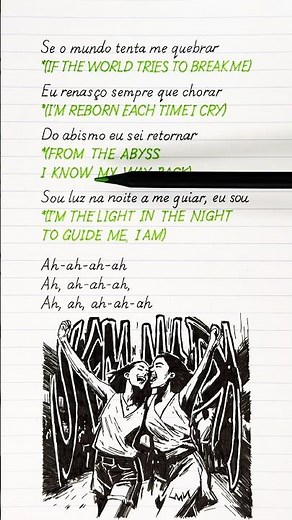 Se o mundo tenta me quebrar
*(IF THE WORLD TRIES TO BREAK ME)
Eu renasço sempre que chorar
*(I'M REBORN EACH TIME I CRY)
Do abismo eu sei retornar
*(FROM THE ABYSS
I KNOW MY WAY BACK)
Sou luz na noite a me guiar, eu sou
*(I'M THE LIGHT IN THE NIGHT
TO GUIDE ME, I AM)
Ah-ah-ah-ah
Ah, ah-ah-ah,
Ah, ah, ah-ah-ah